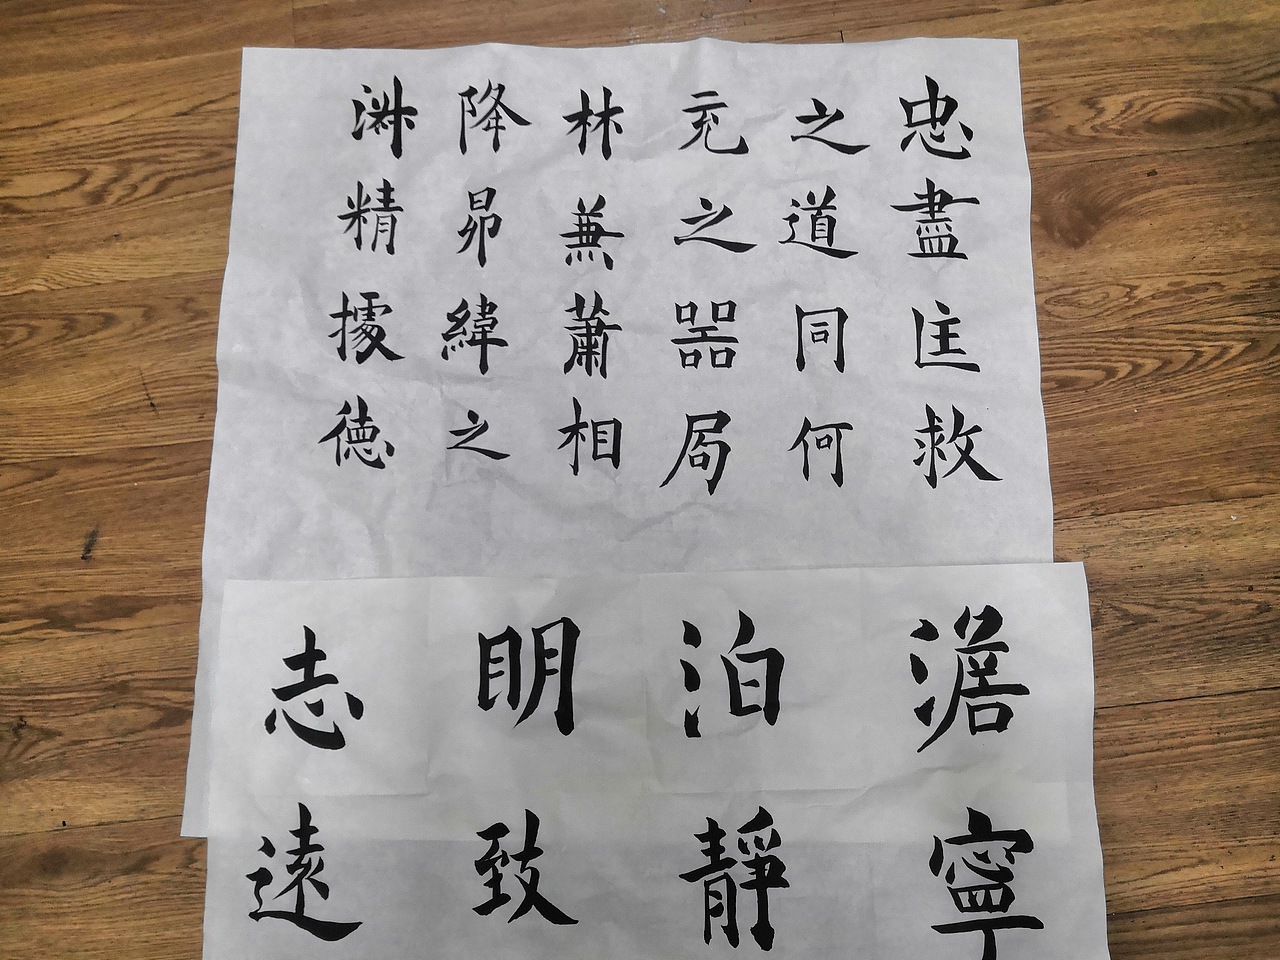 忠盡匡救
之道同何
充之器局
材兼蕭相
降昴緯之
淑精據德
澹寧
泊靜
明致
志遠